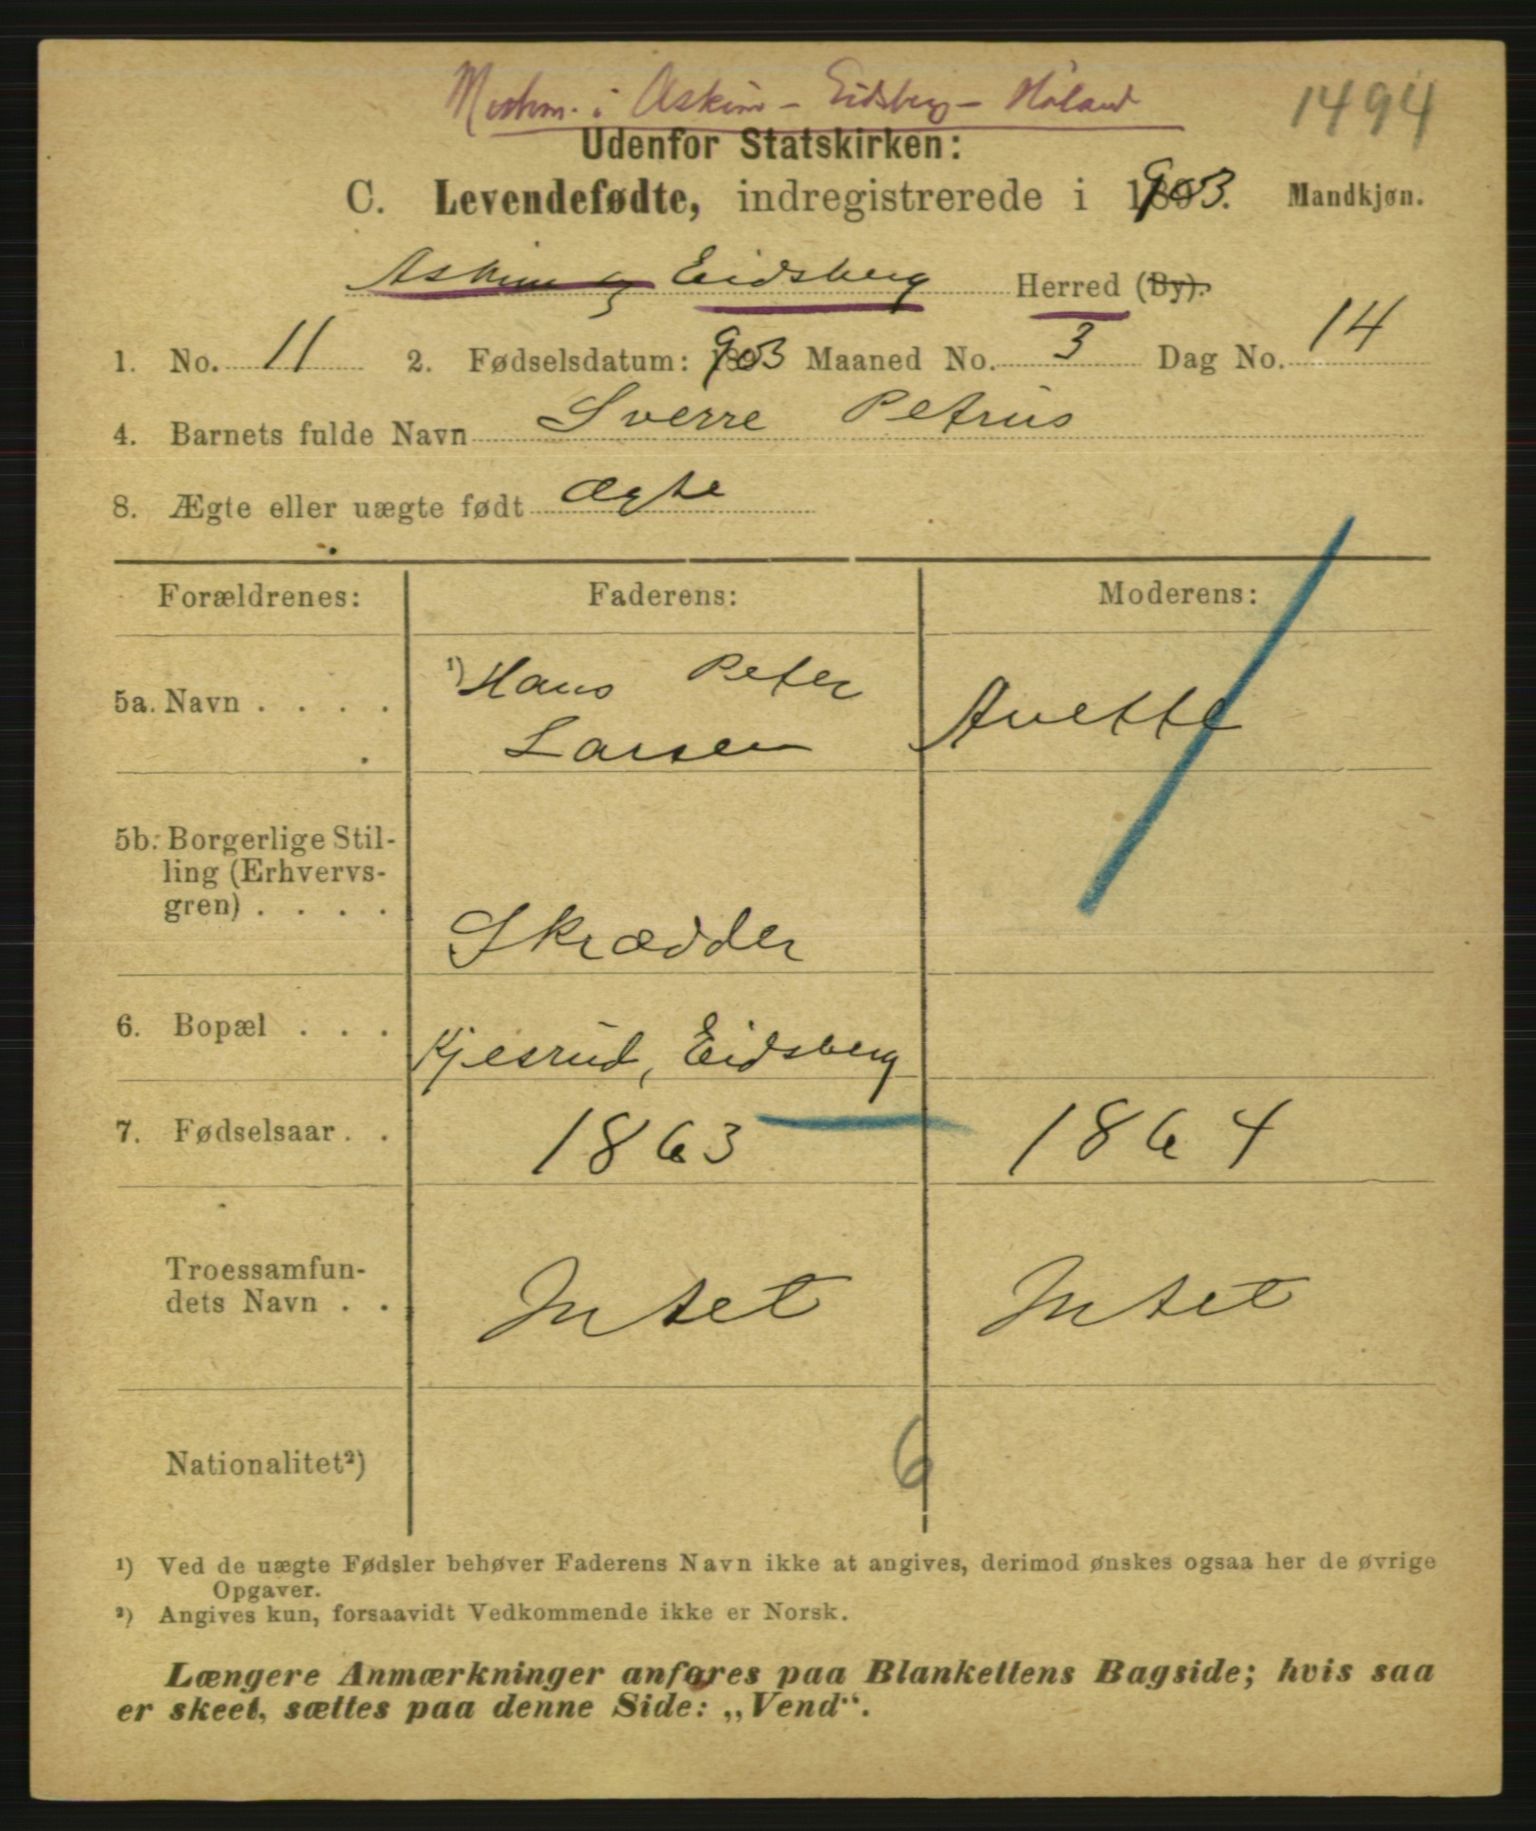 i Askim – Eidsberg – Høland
1494
Udenfor Statskirken:
C. Levendefødte, indregistrerede i 1903. Mandkjøn.
Askim og Eidsberg Herred (By).
1. No. 11 2. Fødselsdatum: 1903 Maaned No. 3 Dag No. 14
4. Barnets fulde Navn Sverre Petrus
8. Ægte eller uægte født ægte
Forældrenes: Faderens: Moderens:
5a. Navn . . . . ¹) Hans Peter Larsen Anette
5b. Borgerlige Stil-
ling (Erhvervs-
gren) . . . . Skrædder
6. Bopæl . . . Kjesrud, Eidsberg
7. Fødselsaar . . 1863 1864
Troessamfun-
dets Navn . . Intet Intet
Nationalitet²)
6
¹) Ved de uægte Fødsler behøver Faderens Navn ikke at angives, derimod ønskes ogsaa her de øvrige
Opgaver.
²) Angives kun, forsaavidt Vedkommende ikke er Norsk.
Længere Anmærkninger anføres paa Blankettens Bagside; hvis saa
er skeet, sættes paa denne Side: „Vend“.